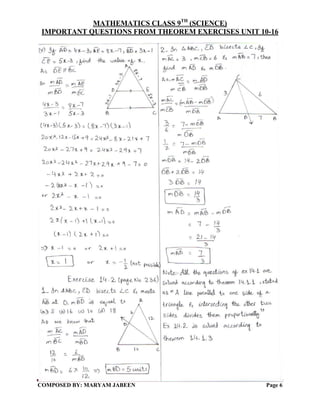 MATHEMATICS CLASS 9TH (SCIENCE)
IMPORTANT QUESTIONS FROM THEOREM EXERCISES UNIT 10-16
(v) If AD = 4x-3, AE = 8x-7, BD = 3x-1
EC = 5x-3, find the value of x.
As DE ∥ BC
So mAD/mBD = mAE/mEC
4x-3/3x-1 = 8x-7/5x-3
(4x-3)(5x-3) = (8x-7)(3x-1)
20x²-12x-15x+9 = 24x²-8x-21x+7
20x²-27x+9 = 24x²-29x+7
20x²-24x²-27x+29x+9-7=0
-4x²+2x+2=0
-2(2x²-x-1)=0
or 2x²-x-1=0
2x²-2x+x-1=0
2x(x-1)+1(x-1)=0
(x-1)(2x+1)=0
⇒ x-1=0 or 2x+1=0
x=1 or x=-1/2 (not possible)
Exercise 14.2 (page No 236)
1. In ΔABC, CD bisects ∠C & meets
AB at D. mBD is equal to
(a) 5 (b) 16 (c) 10 (d) 18
As we know that
mAC/mBC = mAD/mBD
12/10 = 6/mBD
mBD = 6×10/12 ⇒ mBD = 5 units
A
D
E
B
C
A
6
12
D
B
10
C
2. In ΔABC, CD bisects ∠C. If
mAC = 3, mCB = 6 & mAB = 7, then
find mAD & mDB.
C
3
6
A
D
7
B
mAC/mCB = mAD/mDB
mAC/mCB = (mAB - mDB)/mDB
3/6 = 7-mDB/mDB
1/2 = 7-mDB/mDB
mDB = 14-2DB
DB+2DB = 14
3DB = 14
mDB = 14/3
mAD = mAB - mDB
= 7 - 14/3
= 21-14/3
mAD = 7/3
Note: All the questions of ex 14.1 are
solved according to theorem 14.1.1, stated
as "A line parallel to one side of a
triangle & intersecting the other two
sides divides them proportionally."
Ex 14.2 is solved according to
theorem 14.1.3
COMPOSED BY: MARYAM JABEEN Page 6